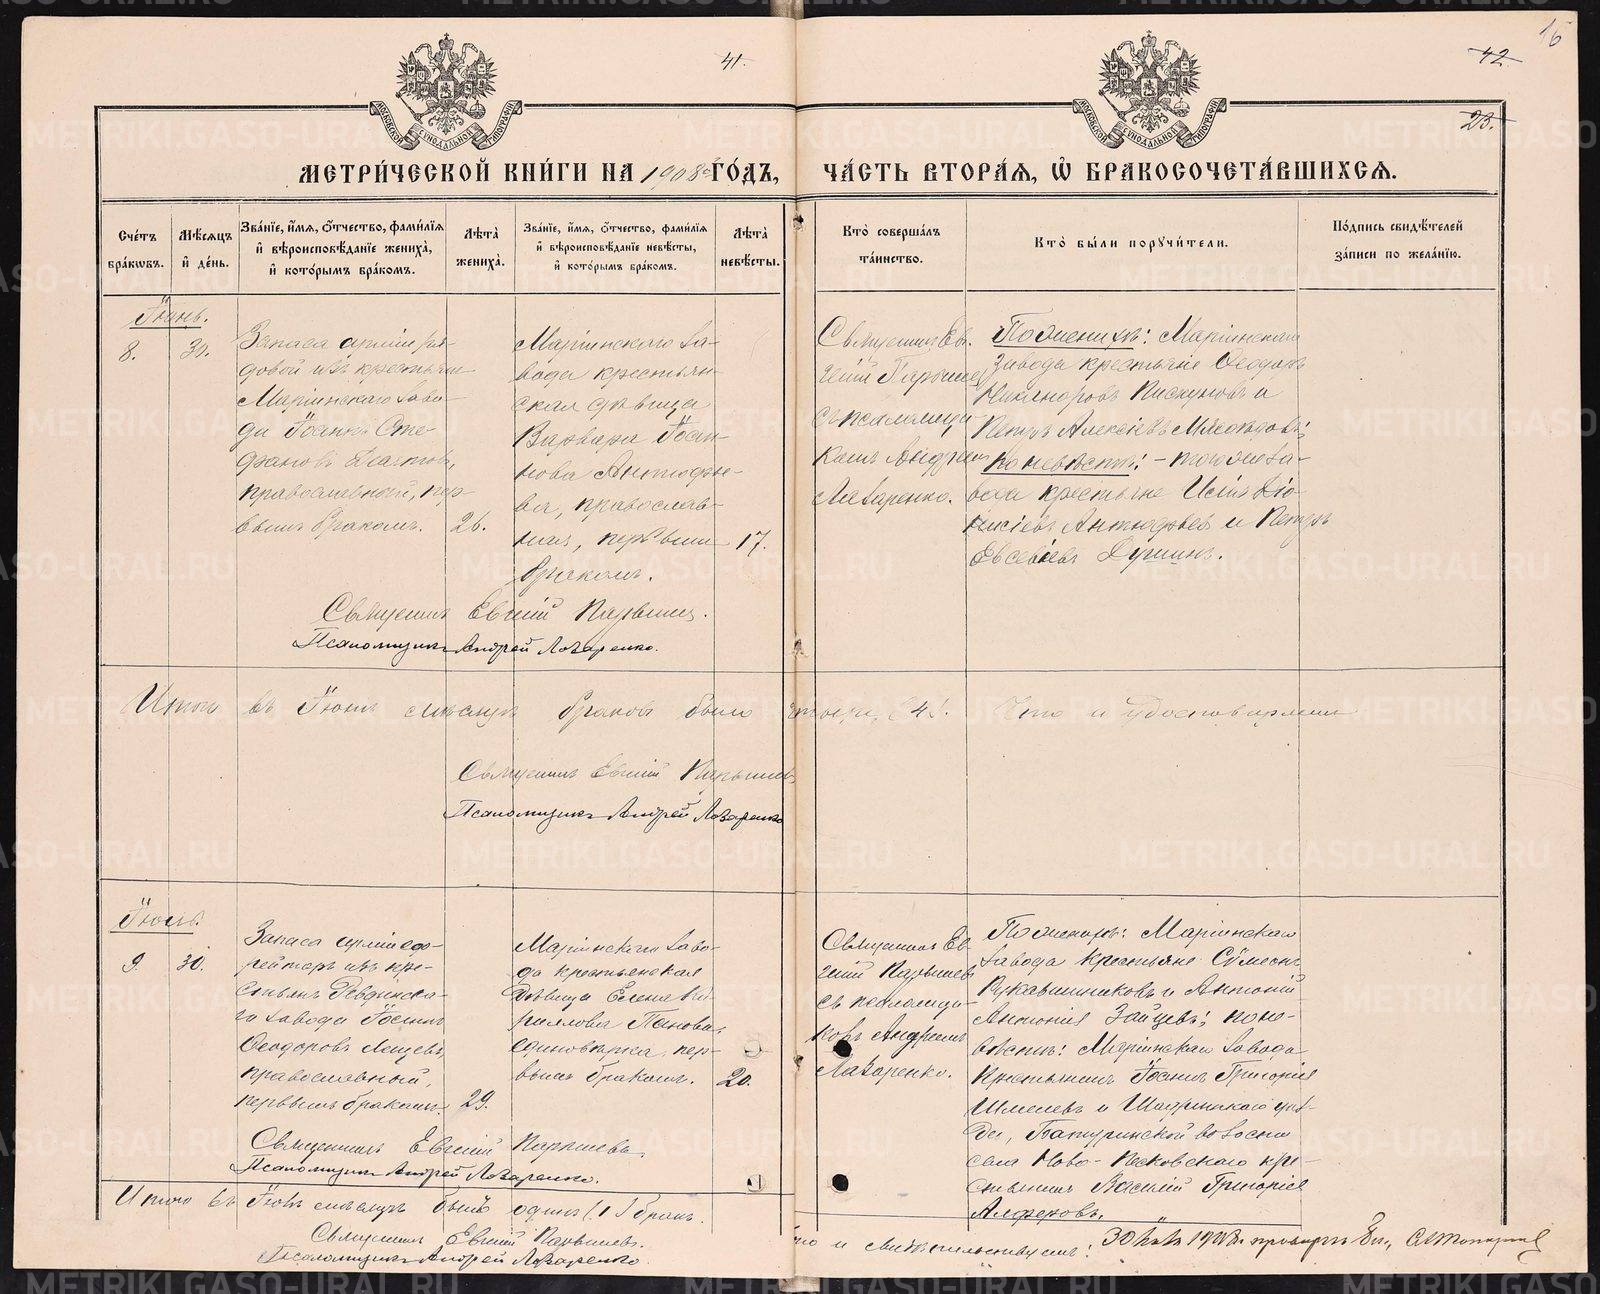 41.
42
16
23.
МЕТРИ́ЧЕСКОЙ КНИ́ГИ НА 1908й ГО́ДЪ, ЧА́СТЬ ВТОРА́Я, Ѡ҆ БРАКОСОЧЕТА́ВШИХСЯ.
Сче́тъ бра́кѡвъ.
Мѣ́сяцъ и҆ де́нь.
Зва́нїе, и҆́мя, ѻ҆́тчество, фами́лїя и҆ вѣроисповѣ́данїе жениха̀, и҆ кото́рымъ бра́комъ.
Лѣта̀ жениха̀.
Зва́нїе, и҆́мя, ѻ҆́тчество, фами́лїя и҆ вѣроисповѣ́данїе невѣ́сты, и҆ кото́рымъ бра́комъ.
Лѣта̀ невѣ́сты.
Кто̀ соверша́лъ та́инство.
Кто̀ бы́ли порꙋчи́тели.
По́дпись свидѣ́телей за́писи по жела́нїю.
Іюнь.
8.
30.
Запаса арміи ря-
довой изъ крестьян
Маріинскаго заво-
да Іоаннъ Сте-
фановъ
православный, пер-
вымъ бракомъ.
26.
Маріинскаго за-
вода крестьян-
ская дѣвица
Варвара Іоан-
нова Антюфѣе-
ва, православ-
ная, первымъ
бракомъ.
17.
Священникъ Ев-
геній Парышев
съ псаломщи-
комъ Андреем
Лазаренко.
По женихѣ: Маріинскаго
завода крестьяне Ѳеодоръ
Никаноровъ Пискуновъ и
Петръ Алексіевъ Мясоѣдовъ;
по невѣстѣ: – того же за-
вода крестьяне Исія Діо-
нисіевъ Антюфѣевъ и Петръ
Евсевіевъ Душинъ.
Священникъ Евгеній Парышевъ.
Псаломщикъ Андрей Лазаренко.
Итого въ Іюнѣ мѣсяцѣ браковъ было четыре (4). Что и удостовѣряемъ
Священникъ Евгеній Парышевъ
Псаломщикъ Андрей Лазаренко
Іюль.
9.
30.
Запаса арміи еф-
рейторъ изъ кре-
стьянъ Ревдинска-
го завода Іосифъ
Ѳеодоровъ
православный,
первымъ бракомъ.
29.
Маріинскаго заво-
да крестьянская
дѣвица Елена Ки-
риллова Панова,
единовѣрка, пер-
вымъ бракомъ.
20.
Священникъ Ев-
геній Парышевъ
съ псаломщи-
комъ Андреемъ
Лазаренко.
По женихѣ: Маріинскаго
завода крестьяне Сѵмеонъ
Рукавишниковъ и Антоній
Антоніевъ Зайцевъ; по не-
вѣстѣ: Маріинскаго завода
крестьянинъ Іоаннъ Григоріев
Шмелевъ и Шадринскаго уѣз-
да, Батуринской волости
села Ново-Песковскаго кре-
стьянинъ Василій Григоріев
Алферовъ.
Священникъ Евгеній Парышевъ,
Псаломщикъ Андрей Лазаренко.
Итого въ Іюлѣ мѣсяцѣ былъ одинъ (1) бракъ.
то и свидѣтельствуемъ:
Священникъ Евгеній Парышевъ.
Псаломщикъ Андрей Лазаренко
30 1908 г. провѣрилъ